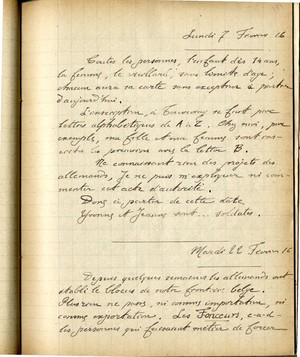 Lundi 7 Fevrier 16
Toutes les personnes, l'enfant dès 14 ans,
la femme, le vieillard, sans limite d'age,
chacun aura sa carte sans exception à partir
d'aujourd'hui.
L'inscription, à Tourcoing se fait par
lettres alphabétiques de A à Z. Chez moi, par
exemple, ma fille et ma femme sont
les premieres avec la lettre B.
Ne connaissant rien des projets des
allemands, je ne puis m'expliquer ni com-
menter cet acte d'autorité.
Donc à partir de cette date
Yvonne et Jeanne sont... soldates.
Mardi 22 Fevrier 16
Depuis quelques semaines les allemands ont
établi le blocus de notre frontière belge.
Plus rien ne passe, ni comme importation, ni
comme exportation. Les Fonceurs, c-a-d-
les personnes qui faisaient métier de forcer